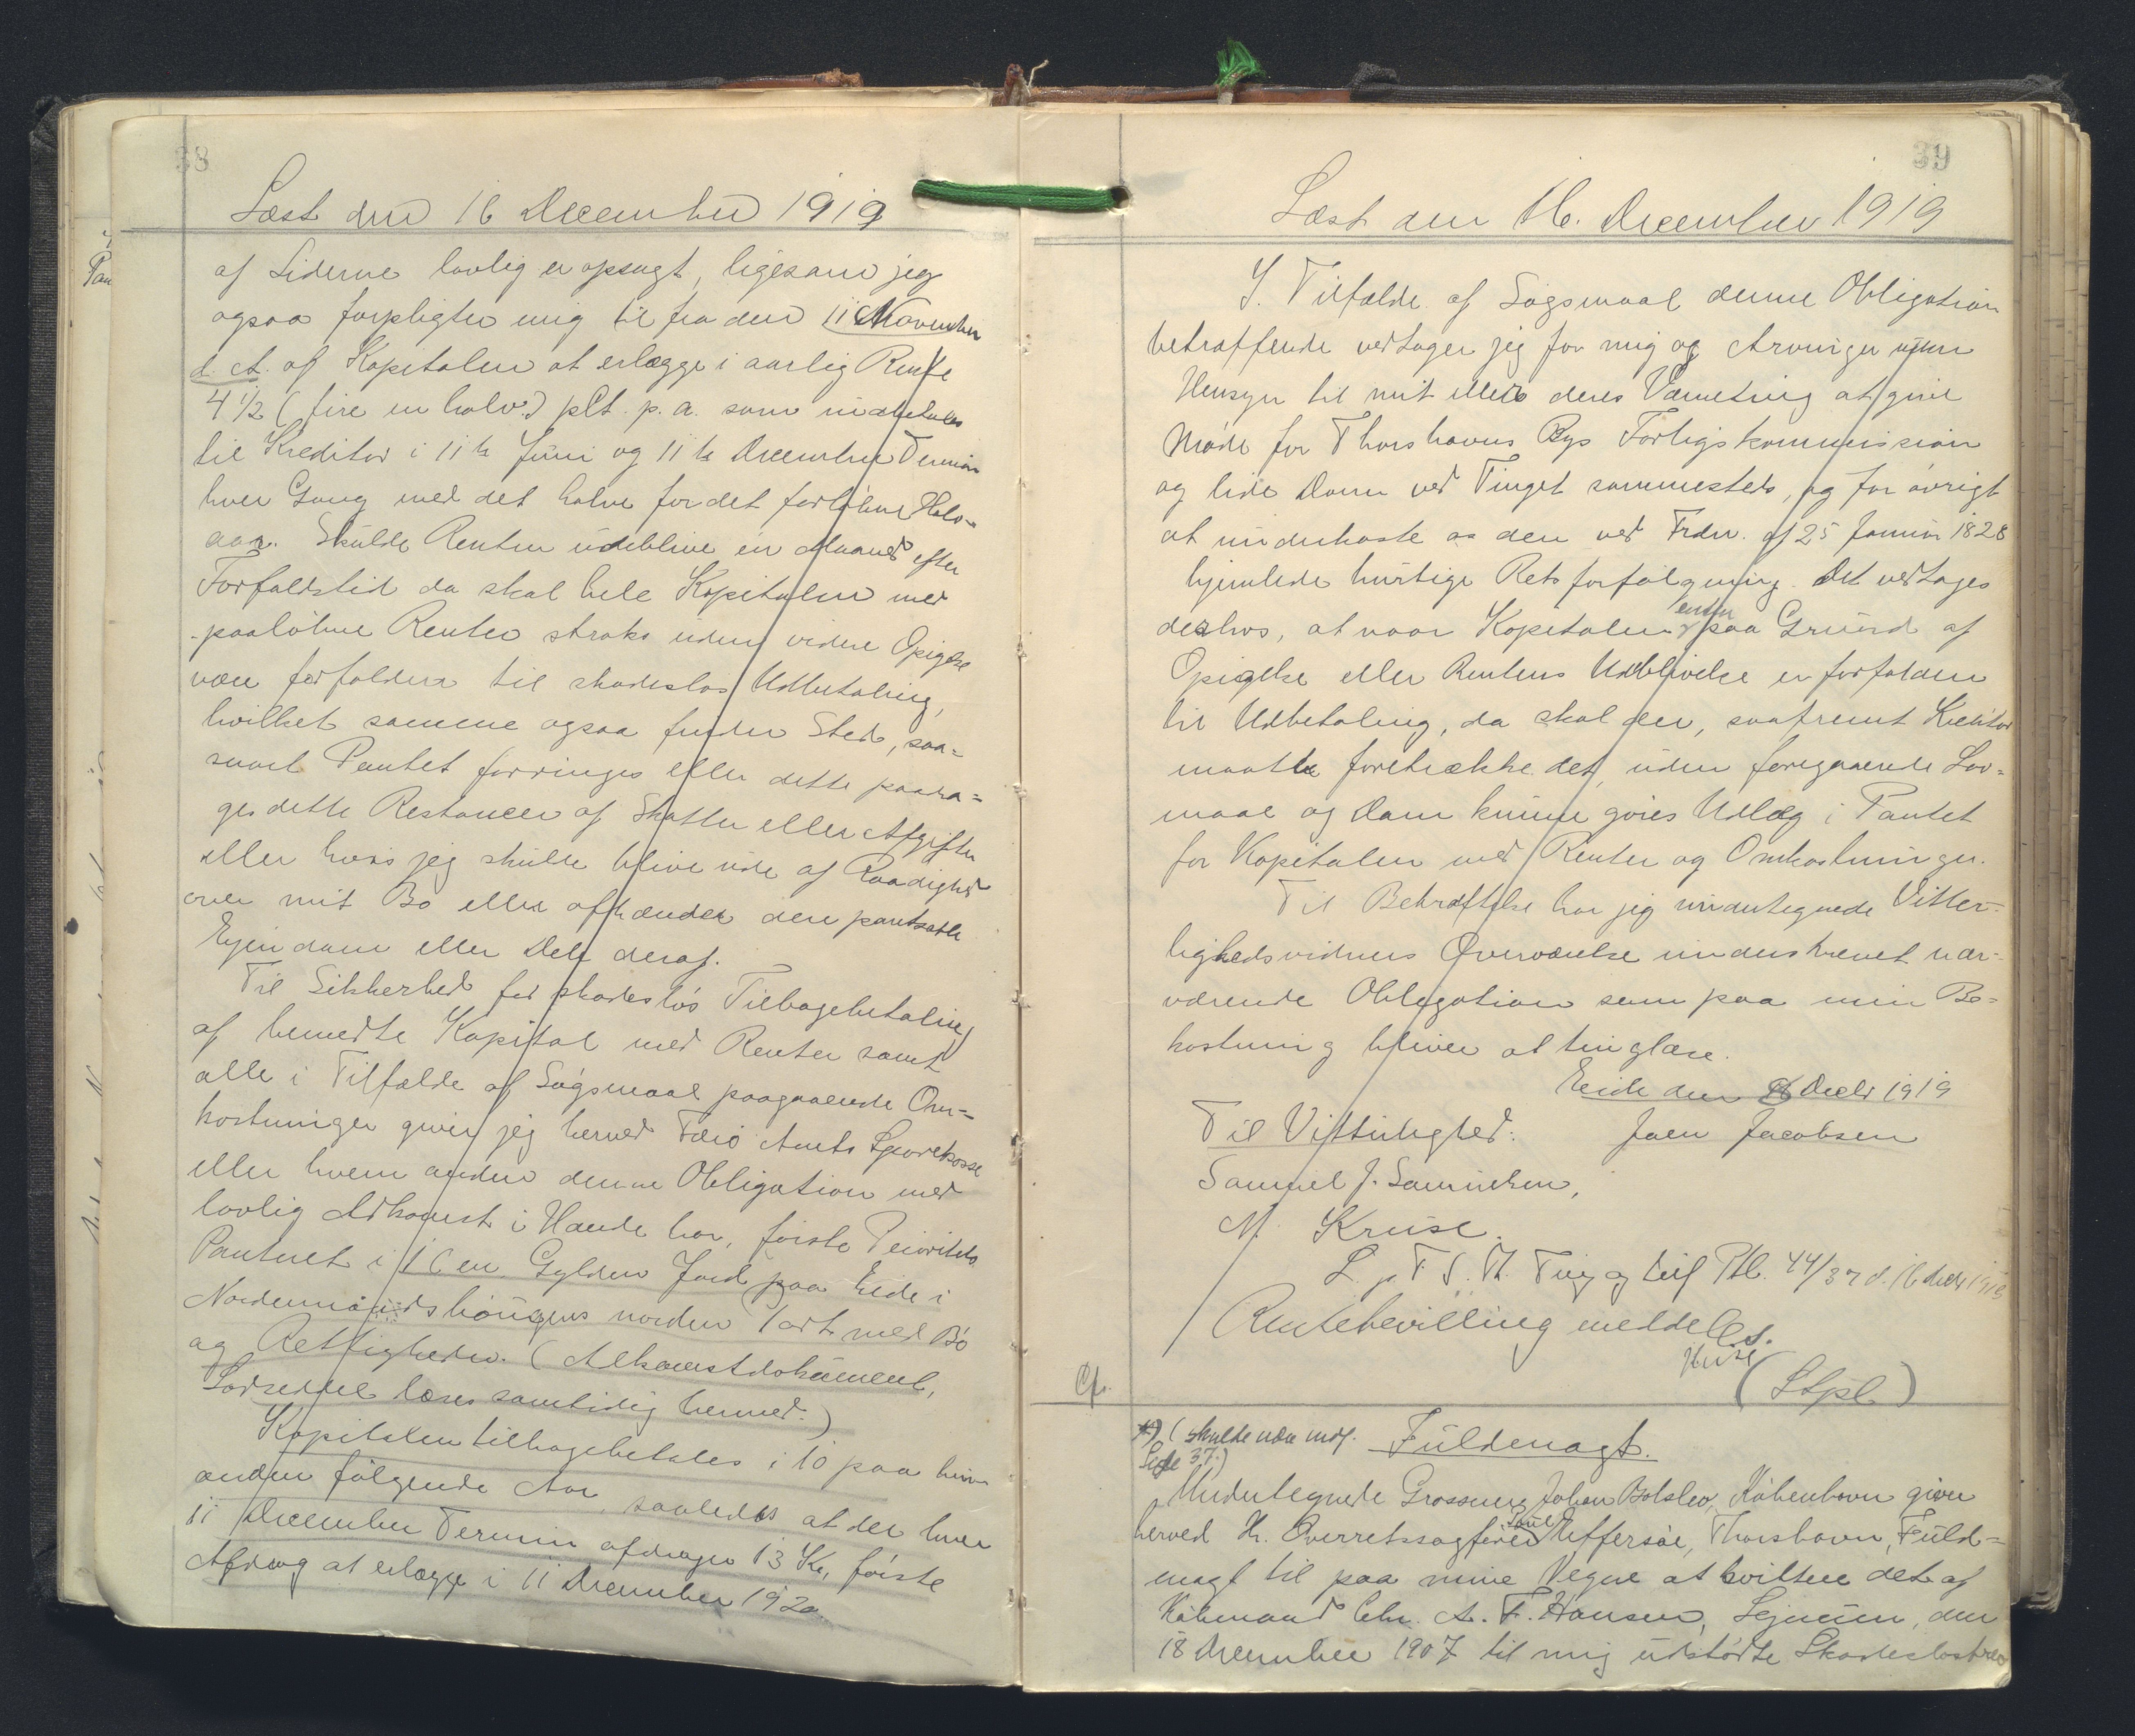 38
Læst den 16 December 1919
af Siderne lovlig er opsagt, ligesom jeg
ogsaa forpligter mig til fra den 11 November
d. A. af Kapitalen at erlægge i aarlig Rente
4 1/2 (fire en halv) pCt. p. a. som indbetales
til Kreditor i 11te Juni og 11te December Termin
hver Gang med det halve for det forløbne Halv-
aar. Skulde Renten udeblive en Maaned efter
Forfaldstid da skal hele Kapitalen med
paaløbne Renter straks uden videre Opsigelse
være forfalden til skadesløs Udbetaling,
hvilket samme ogsaa finder Sted, saa=
snart Pantet forringes eller dette paadra=
ges dette Restancer af Skatter eller Afgifter
eller hvis jeg skulde blive ude af Raadighed
over mit Bo eller afhænder den pantsatte
Ejendom eller Dele deraf.
Til Sikkerhed for skadesløs Tilbagebetaling
af bemeldte Kapital med Renter samt
alle i Tilfælde af Søgsmaal paagaaende Om=
kostninger giver jeg herved Færø Amts Sparekasse
eller hvem anden denne Obligation med
lovlig Adkomst i Hænde har, første Prioritets
Panteret i 1 6 en. Gylden Jord paa Eide i
norden Part med Bø
og Rettigheder. (Adkomstdokument,
Lodseddel læses samtidig hermed.)
Kapitalen tilbagebetales i 10 paa hin-
anden følgende Aar, saaledes at der hver
11 December Termin afdrages 13 Kr, første
Afdrag at erlægge i 11 December 1920.
39
Læst den 16. December 1919
I Tilfælde af Søgsmaal denne Obligation
betræffende vedtager jeg for mig og Arvinger uden
Hensyn til mit eller deres Værneting at give
Møde for Thorshavns Bys Forligskommission
og lide Dom ved Tinget sammesteds, og for øvrigt
at underkaste os den ved Frdn. af 25 Januar 1828
hjemlede hurtige Retsforfølgning. Det vedtages
enten
derhos, at naar Kapitalen paa Grund af
Opsigelse eller Rentens Udeblivelse er forfalden
til Udbetaling, da skal der, saafremt Kreditor
maatte foretrække det, uden foregaaende Lov=
maal og Dom kunne gøres Udlæg i Pantet
for Kapitalen med Renter og Omkostninger.
Til Bekræftelse har jeg i undertegnede Vitter-
lighedsvidners Overværelse underskrevet nær-
værende Obligation som paa min Be=
kostning bliver at tinglæse.
Eide den Decbr 1919
Til Vitterlighed: Joen Jacobsen
Samuel J. Samuelsen,
M. Kruse.
L. p. T. f. Th. Ting og tilf Ptb. 44/37 d. 16 decbr 1919
Rentebevilling meddeles.
(Stpl)
Cfr.
(skulde være indf. Fuldmagt.
Side 37.)
Undertegnede Grosserer Johan Balslev, København giver
Poul
herved Hr. Overretssagfører Effersøe, Thorshavn, Fuld=
magt til paa mine Vegne at kvittere det af
Købmand Chr. A. F. Hansen, den
18 December 1907 til mig udstedte Skadesløsbrev